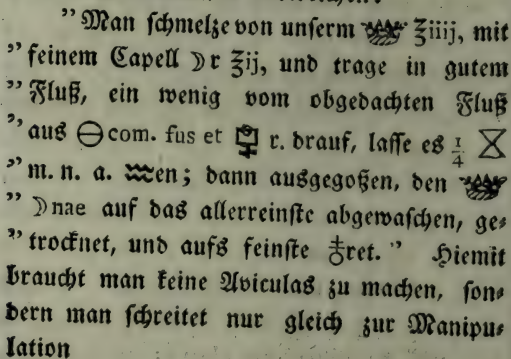 "Man ſchmelze von unſerm ʒiiij, mit
"feinem Capell ☽r ʒij, und trage in gutem
"Fluß, ein wenig vom obgedachten Fluß
"aus 🜔 com. fus et r. drauf, laſſe es ¼
"m. n. a. ♒en; dann ausgegoßen, den
"☽nae auf das allerreinſte abgewaſchen, ge⸗
"trocknet, und aufs feinſte ♁ret." Hiemit
braucht man keine Aviculas zu machen, ſon⸗
dern man ſchreitet nur gleich zur Manipu⸗
lation